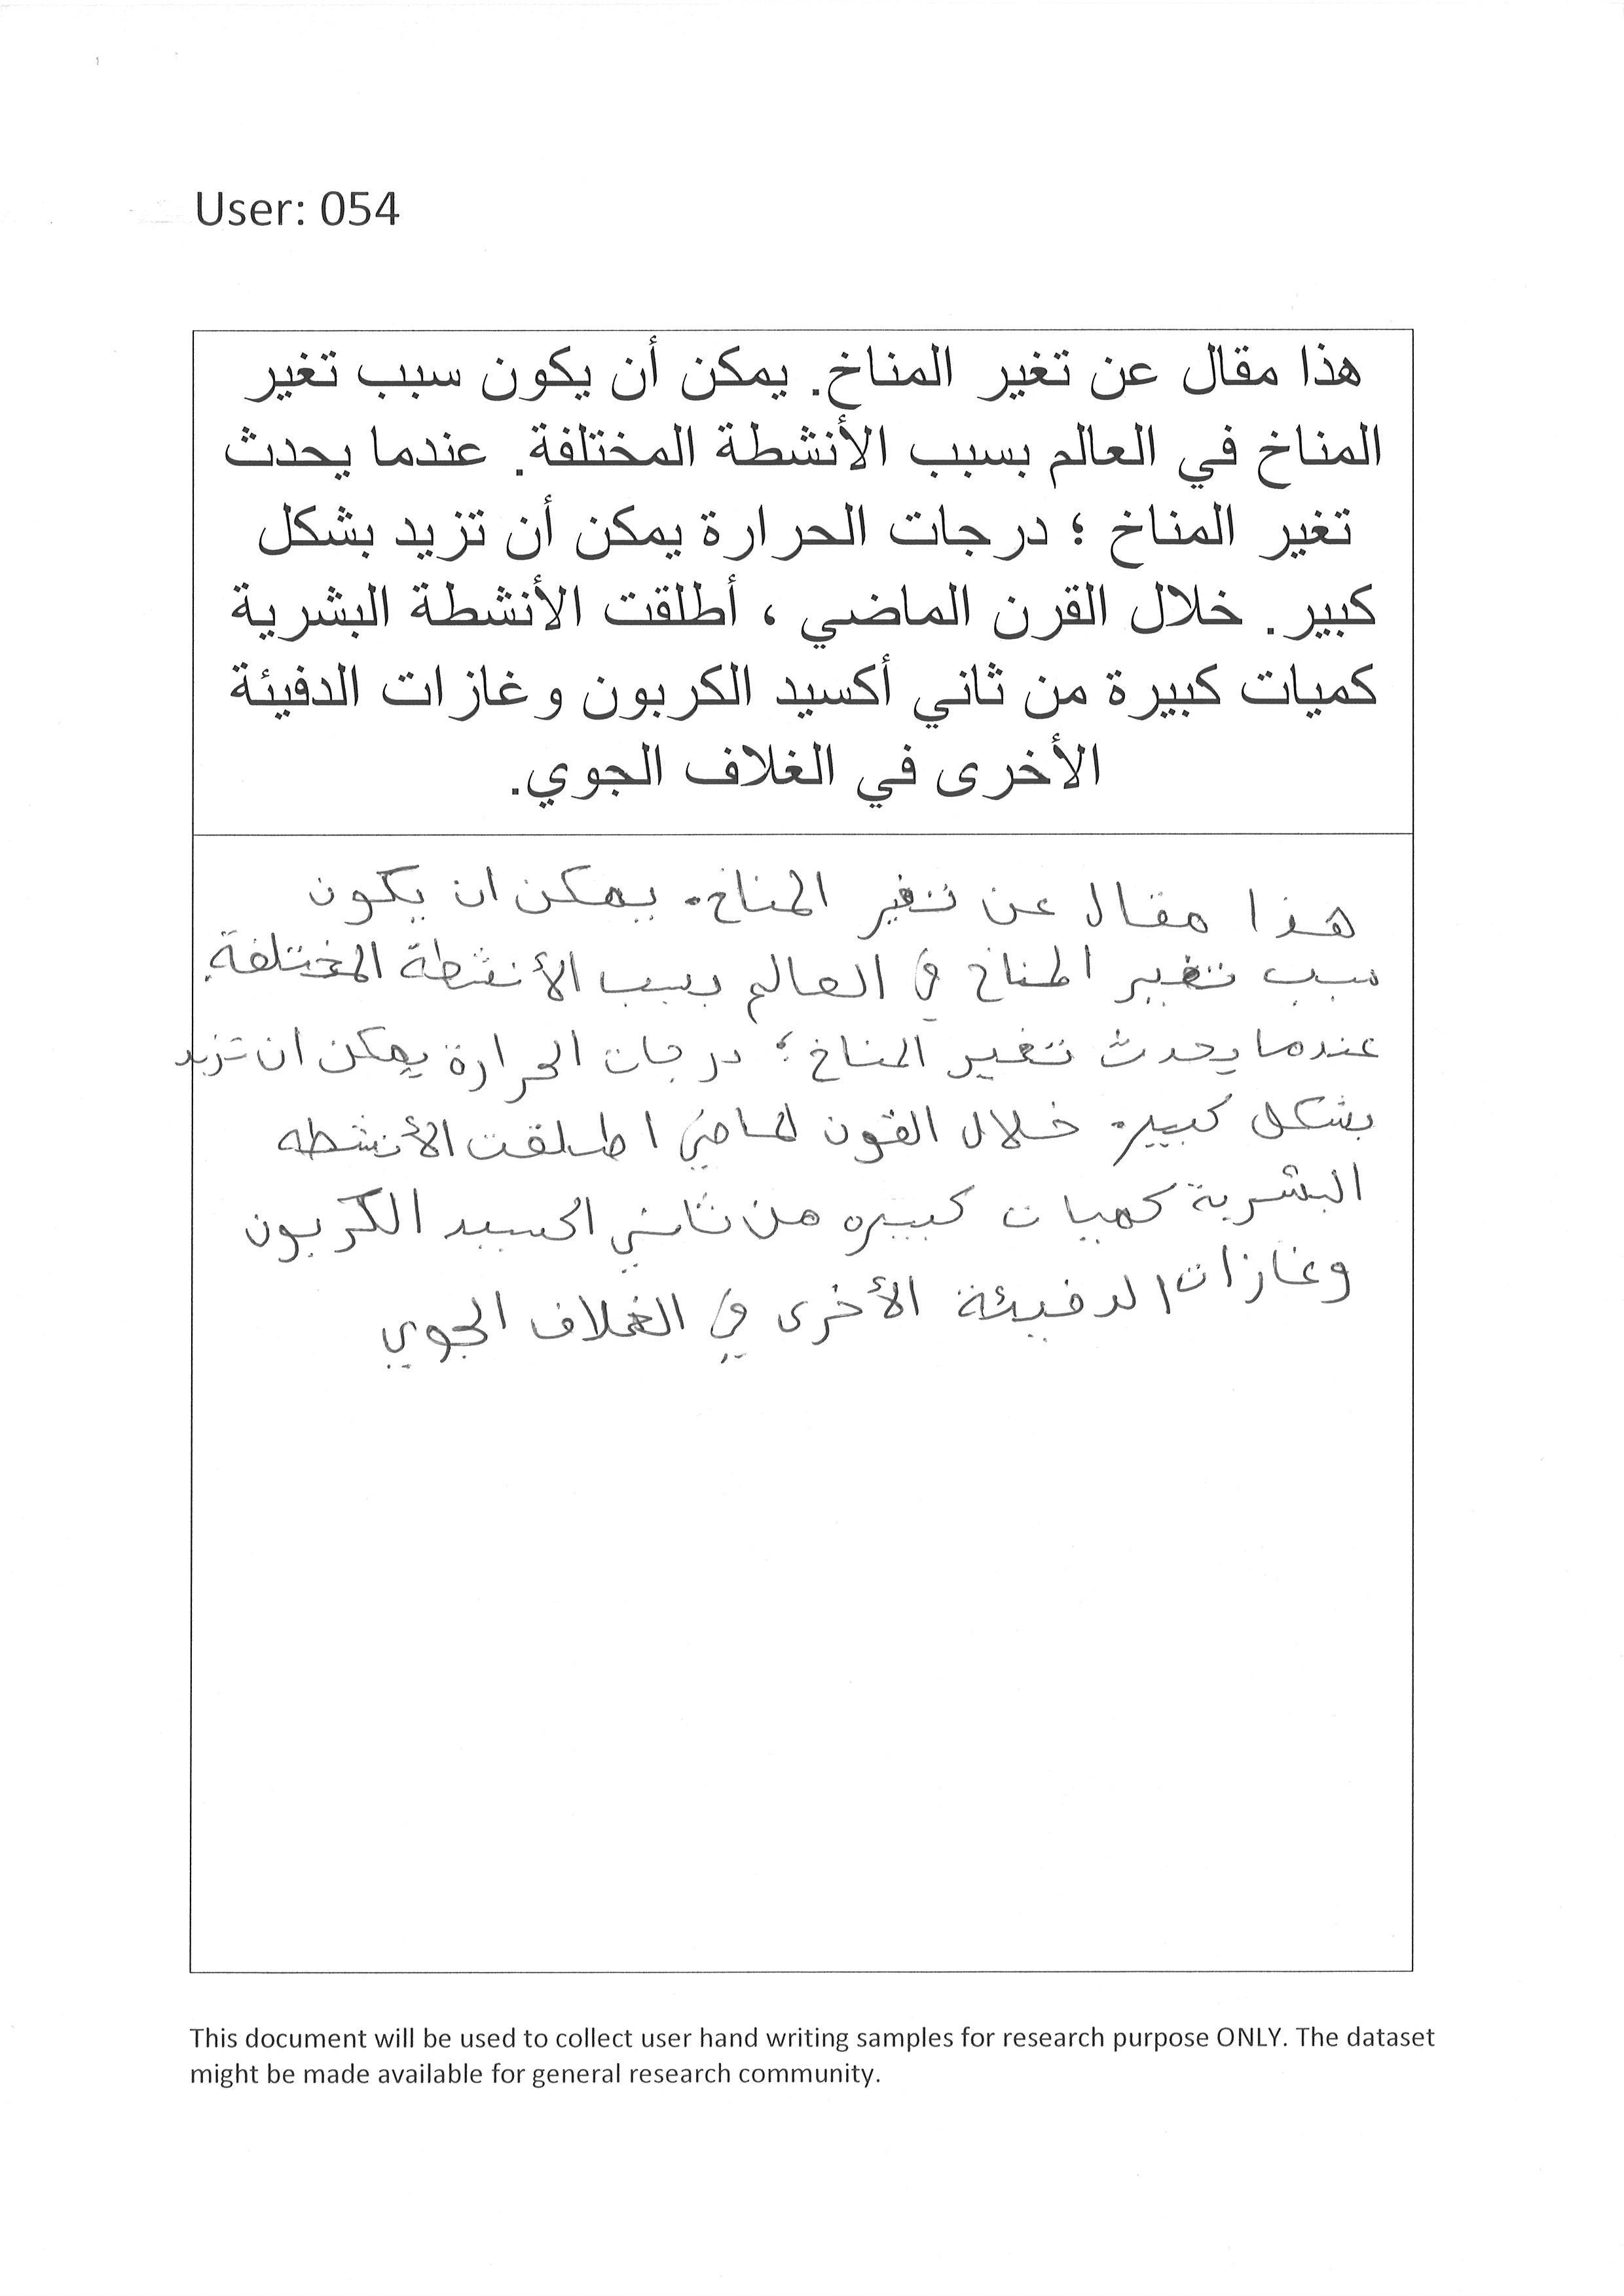 User: 054
هذا مقال عن تغير المناخ. يمكن أن يكون سبب تغير
المناخ في العالم بسبب الأنشطة المختلفة. عندما يحدث
تغير المناخ ؛ درجات الحرارة يمكن أن تزيد بشكل
كبير. خلال القرن الماضي ، أطلقت الأنشطة البشرية
كميات كبيرة من ثاني أكسيد الكربون وغازات الدفيئة
الأخرى في الغلاف الجوي.
هذا مقال عن تغير المناخ. يمكن ان يكون
سبب تغير المناخ في العالم بسبب الأنشطة المختلفة.
عندما يحدث تغير المناخ ؛ درجات الحرارة يمكن ان تزيد
بشكل كبير. خلال القرن الماضي اطلقت الأنشطه
البشرية كميات كبيره من ثاني اكسيد الكربون
وغازات الدفيئة الأخرى في الغلاف الجوي
This document will be used to collect user hand writing samples for research purpose ONLY. The dataset
might be made available for general research community.